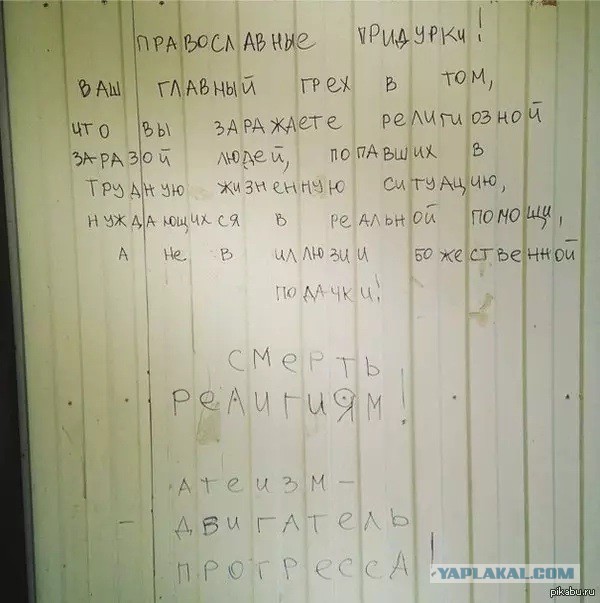 ПРАВОСЛАВНЫЕ ПРИДУРКИ!
ВАШ ГЛАВНЫЙ ГРЕХ В ТОМ,
ЧТО ВЫ ЗАРАЖАЕТЕ РЕЛИГИОЗНОЙ
ЗАРАЗОЙ ЛЮДЕЙ, ПОПАВШИХ В
ТРУДНУЮ ЖИЗНЕННУЮ СИТУАЦИЮ,
НУЖДАЮЩИХСЯ В РЕАЛЬНОЙ ПОМОЩИ,
А Не В ИЛЛЮЗИИ БОЖЕСТВЕННОЙ
ПОДАЧКИ!
СМеРТЬ
РеЛИГИЯМ!
АТеИЗМ –
– ДВИГАТеЛЬ
ПРОГРеССА!
YAPLAKAL.COM
pikabu.ru